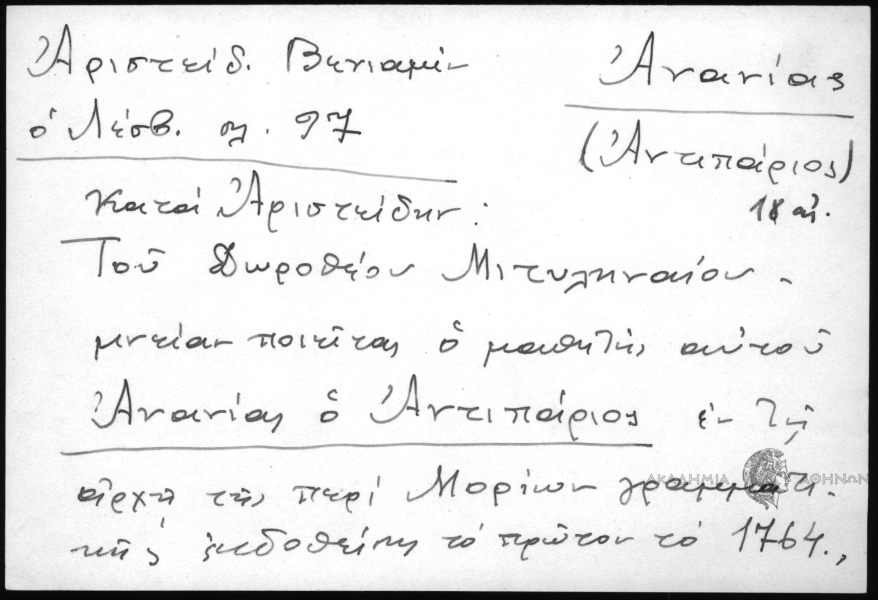 Ἀριστείδ. Βενιαμὶν
ὁ Λέσβ. σελ. 97
Ἀνανίας
(Ἀντιπάριος)
18 αἰ.
Κατὰ Ἀριστείδην:
Τοῦ Δωροθέου Μιτυληναίου -
μνείαν ποιεῖται ὁ μαθητὴς αὐτοῦ
Ἀνανίας ὁ Ἀντιπάριος ἐν τῇ
ἀρχῇ τῆς περὶ Μορίων γραμματι-
κῆς ἐκδοθείσης τὸ πρῶτον τὸ 1764.,
ΑΚΑΔΗΜΙΑ ΑΘΗΝΩΝ